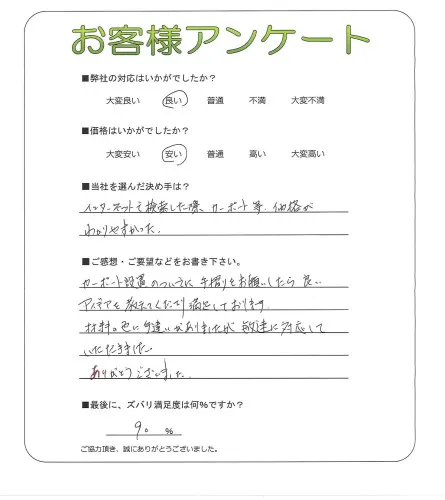 お客様アンケート
■弊社の対応はいかがでしたか?
大変良い 良い 普通 不満 大変不満
■価格はいかがでしたか?
大変安い 安い 普通 高い 大変高い
■当社を選んだ決め手は?
インターネットで検索した際、カーポート等、価格が
わかりやすかった。
■ご感想・ご要望などをお書き下さい。
カーポート設置のついでに手摺りをお願いしたら良い
アイデアを教えてくださり満足しております。
材料の色に手違いがありましたが敏速に対応して
いただきました。
ありがとうございました。
■最後に、ズバリ満足度は何%ですか?
90 %
ご協力頂き、誠にありがとうございました。